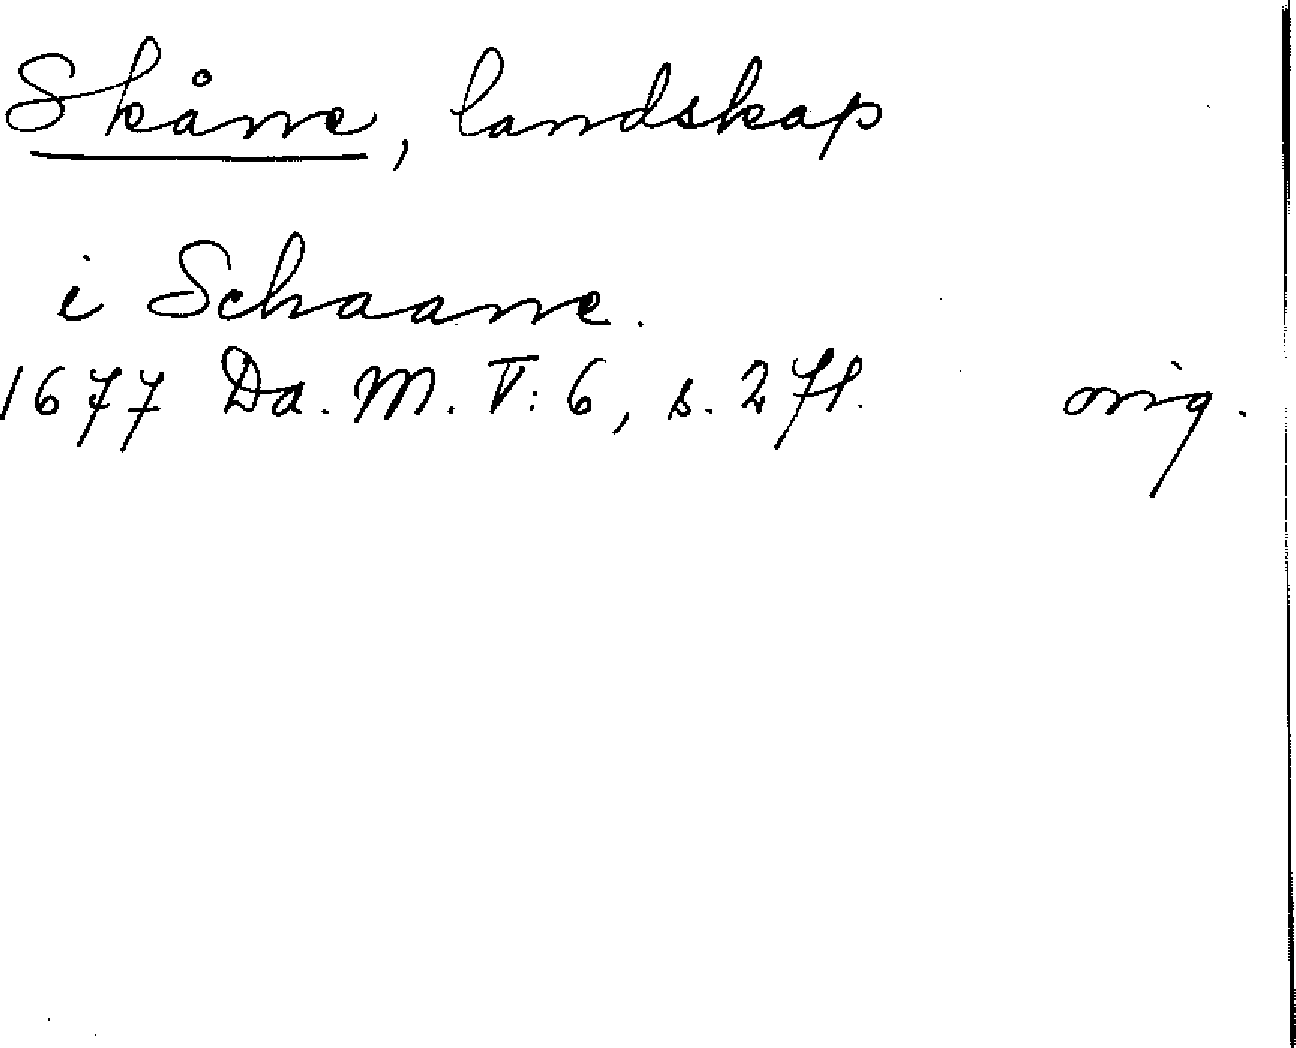 Skåne, landskap
i Schaane.
1677 Da. M. V: 6, s. 271. orig.